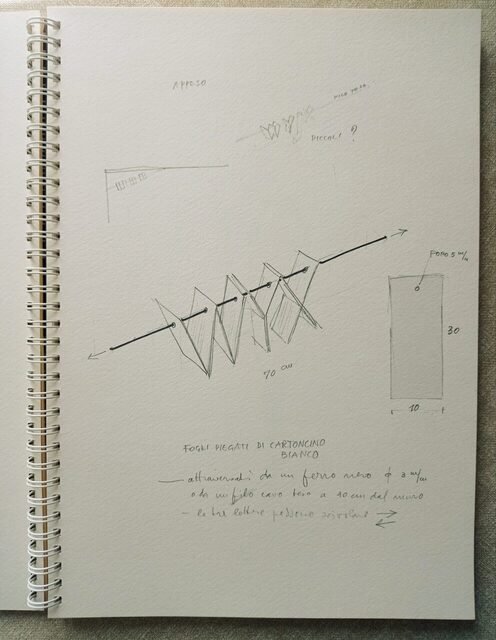 APPESO
PICCOLI ?
FORO 5 m/m
30
10
70 cm
FOGLI PIEGATI DI CARTONCINO
BIANCO
— attraversati da un ferro nero ϕ 3 m/m
o da un filo cavo teso a 10 cm dal muro
— le tre lettere possono scivolare